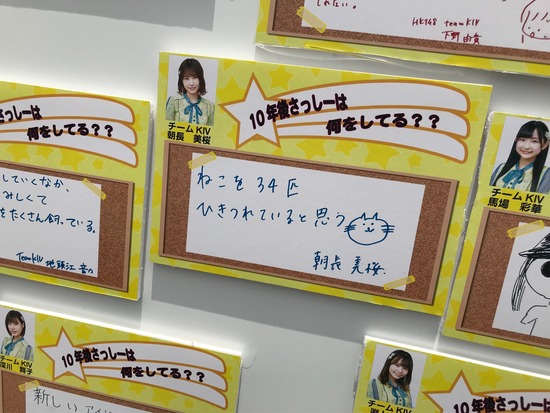 HKT48 teamKIV
下野由貴
チームKIV
朝長 美桜
10年後さっしーは
何をしてる??
ねこを34匹
ひきつれていると思う
朝長美桜
10年後さっしーは
何をしてる??
していくなか、
みしくて
をたくさん飼っている。
TeamKIV 地頭江音々
チームKIV
馬場 彩華
チームKIV
深川 舞子
10年後さっしーは
何をしてる??
新しいアイ
チームKIV
10年